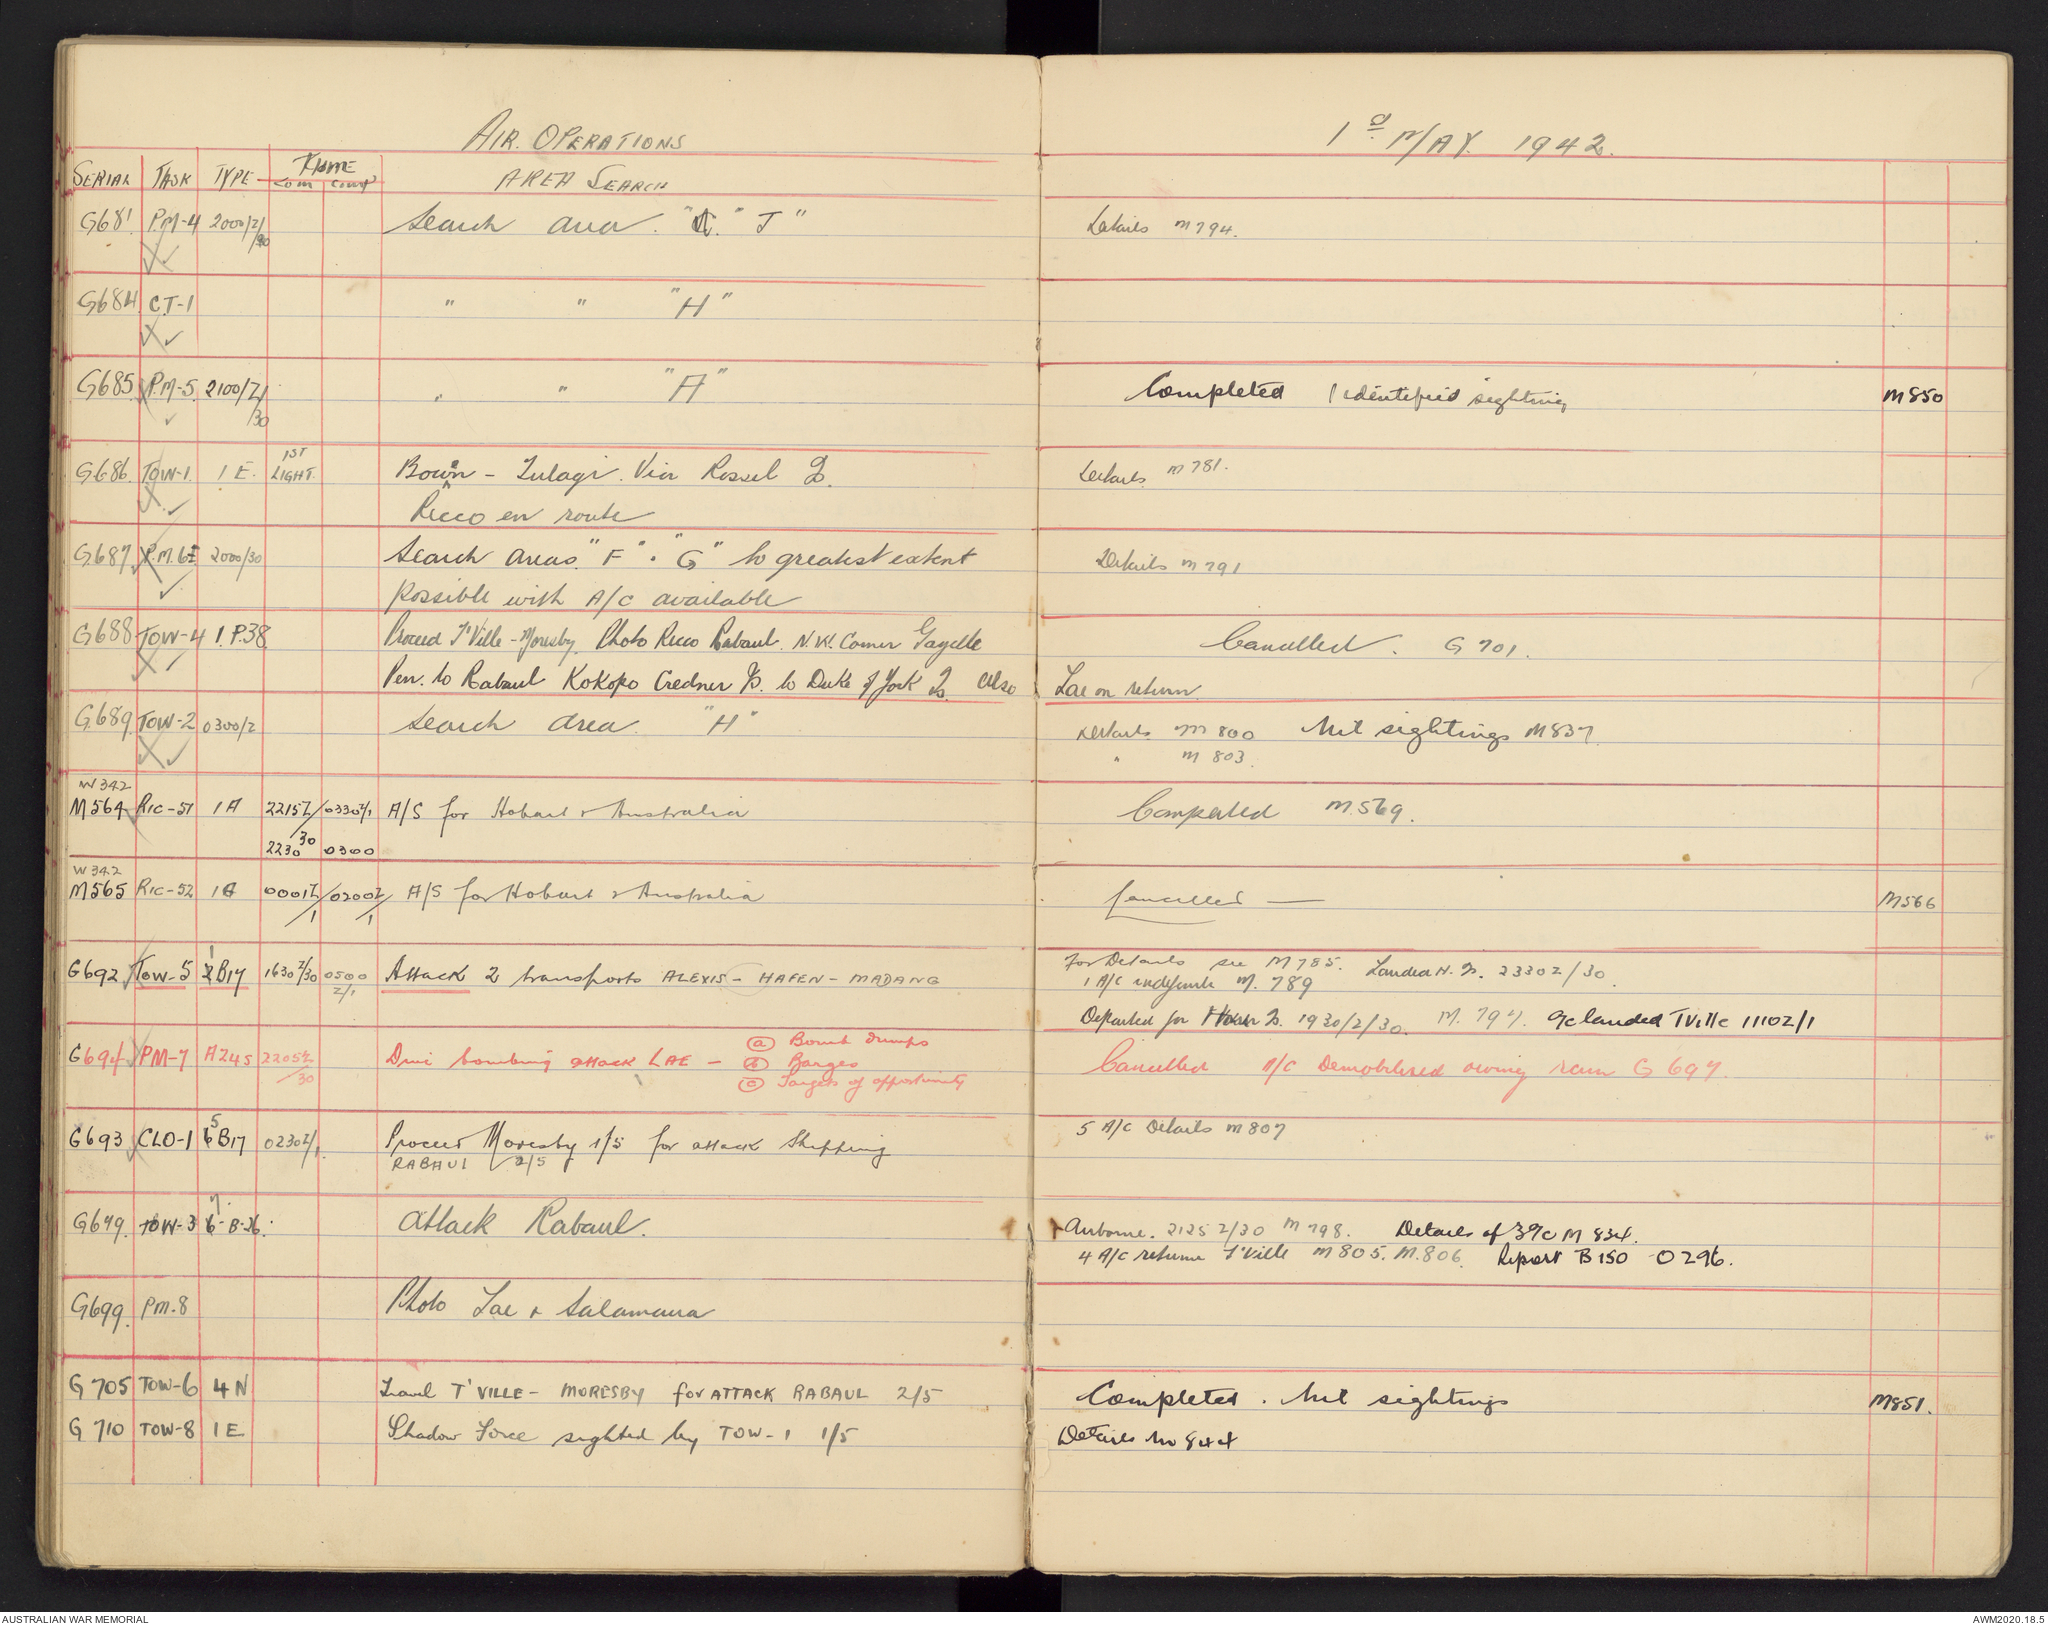 AIR. OPERATIONS
1st MAY. 1942.
SERIAL TASK TYPE TIME
com comp
AREA SEARCH
G681 P.M-4 2000/Z/30 Search area. "J" Details M794.
G684 C.T-1 " " "H"
G685 P.M-5. 2100/Z/30 " " "A" Completed 1 identified sighting M850
G686. TOW-1. 1 E. 1ST LIGHT. Bowen - Tulagi. Via Rossel Is. Details M781.
Recco en route
G687 P.M.6 2000/30 Search areas "F" . "G" to greatest extent Details M791
possible with A/C available
G688 TOW-4 1.P.38 Proceed T'Ville - Moresby. Photo Recco Rabaul. N.W. Corner Gazelle Cancelled. G701.
Pen. to Rabaul Kokopo Credner Is. to Duke of York Is also Lae on return
G689. TOW-2 0300/Z Search area. "H" Details M800 Nil sightings M837
" M803.
W342
M564 RIC-51 1 A 2215Z/30 0330Z/1 A/S for Hobart & Australia Completed M569.
2230 0300
W342
M565 RIC-52 1 0001Z/1 0200Z/1 A/S for Hobart & Australia Cancelled — M566
G692 TOW-5 1 2 B17 1630Z/30 0500Z/1 Attack 2 transports ALEXIS - HAFEN - MADANG For Details see M785. Landed H. Is. 2330Z/30.
1 A/C M.789
Departed for Is. 1930/Z/30. M.797. A/c landed TVille 1110Z/1
G694 PM-7 A24S 2205Z/30 Dive bombing attack LAE - (a) Bomb dumps
(b) Barges
(c) Targets of opportunity
Cancelled A/C Demobilised owing rain G697.
G693 CLO-1 5 6 B17 0230Z/1. Proceed Moresby 1/5 for attack Shipping 5 A/C Details M807
RABAUL 2/5
G679. TOW-3 7 6-B-26. Attack Rabaul. Airborne. 2125Z/30 M798. Details of 3 A/C M834.
4 A/C returned T'Ville M805. M.806. Report B150 -O296.
G699. PM.8 Photo Lae & Salamaua
G705 TOW-6 4 N Travel T'VILLE - MORESBY for ATTACK RABAUL 2/5 Completed. Nil sightings M851.
G710 TOW-8 1 E Shadow Force sighted by TOW-1 1/5 Details M844
AUSTRALIAN WAR MEMORIAL
AWM2020.18.5